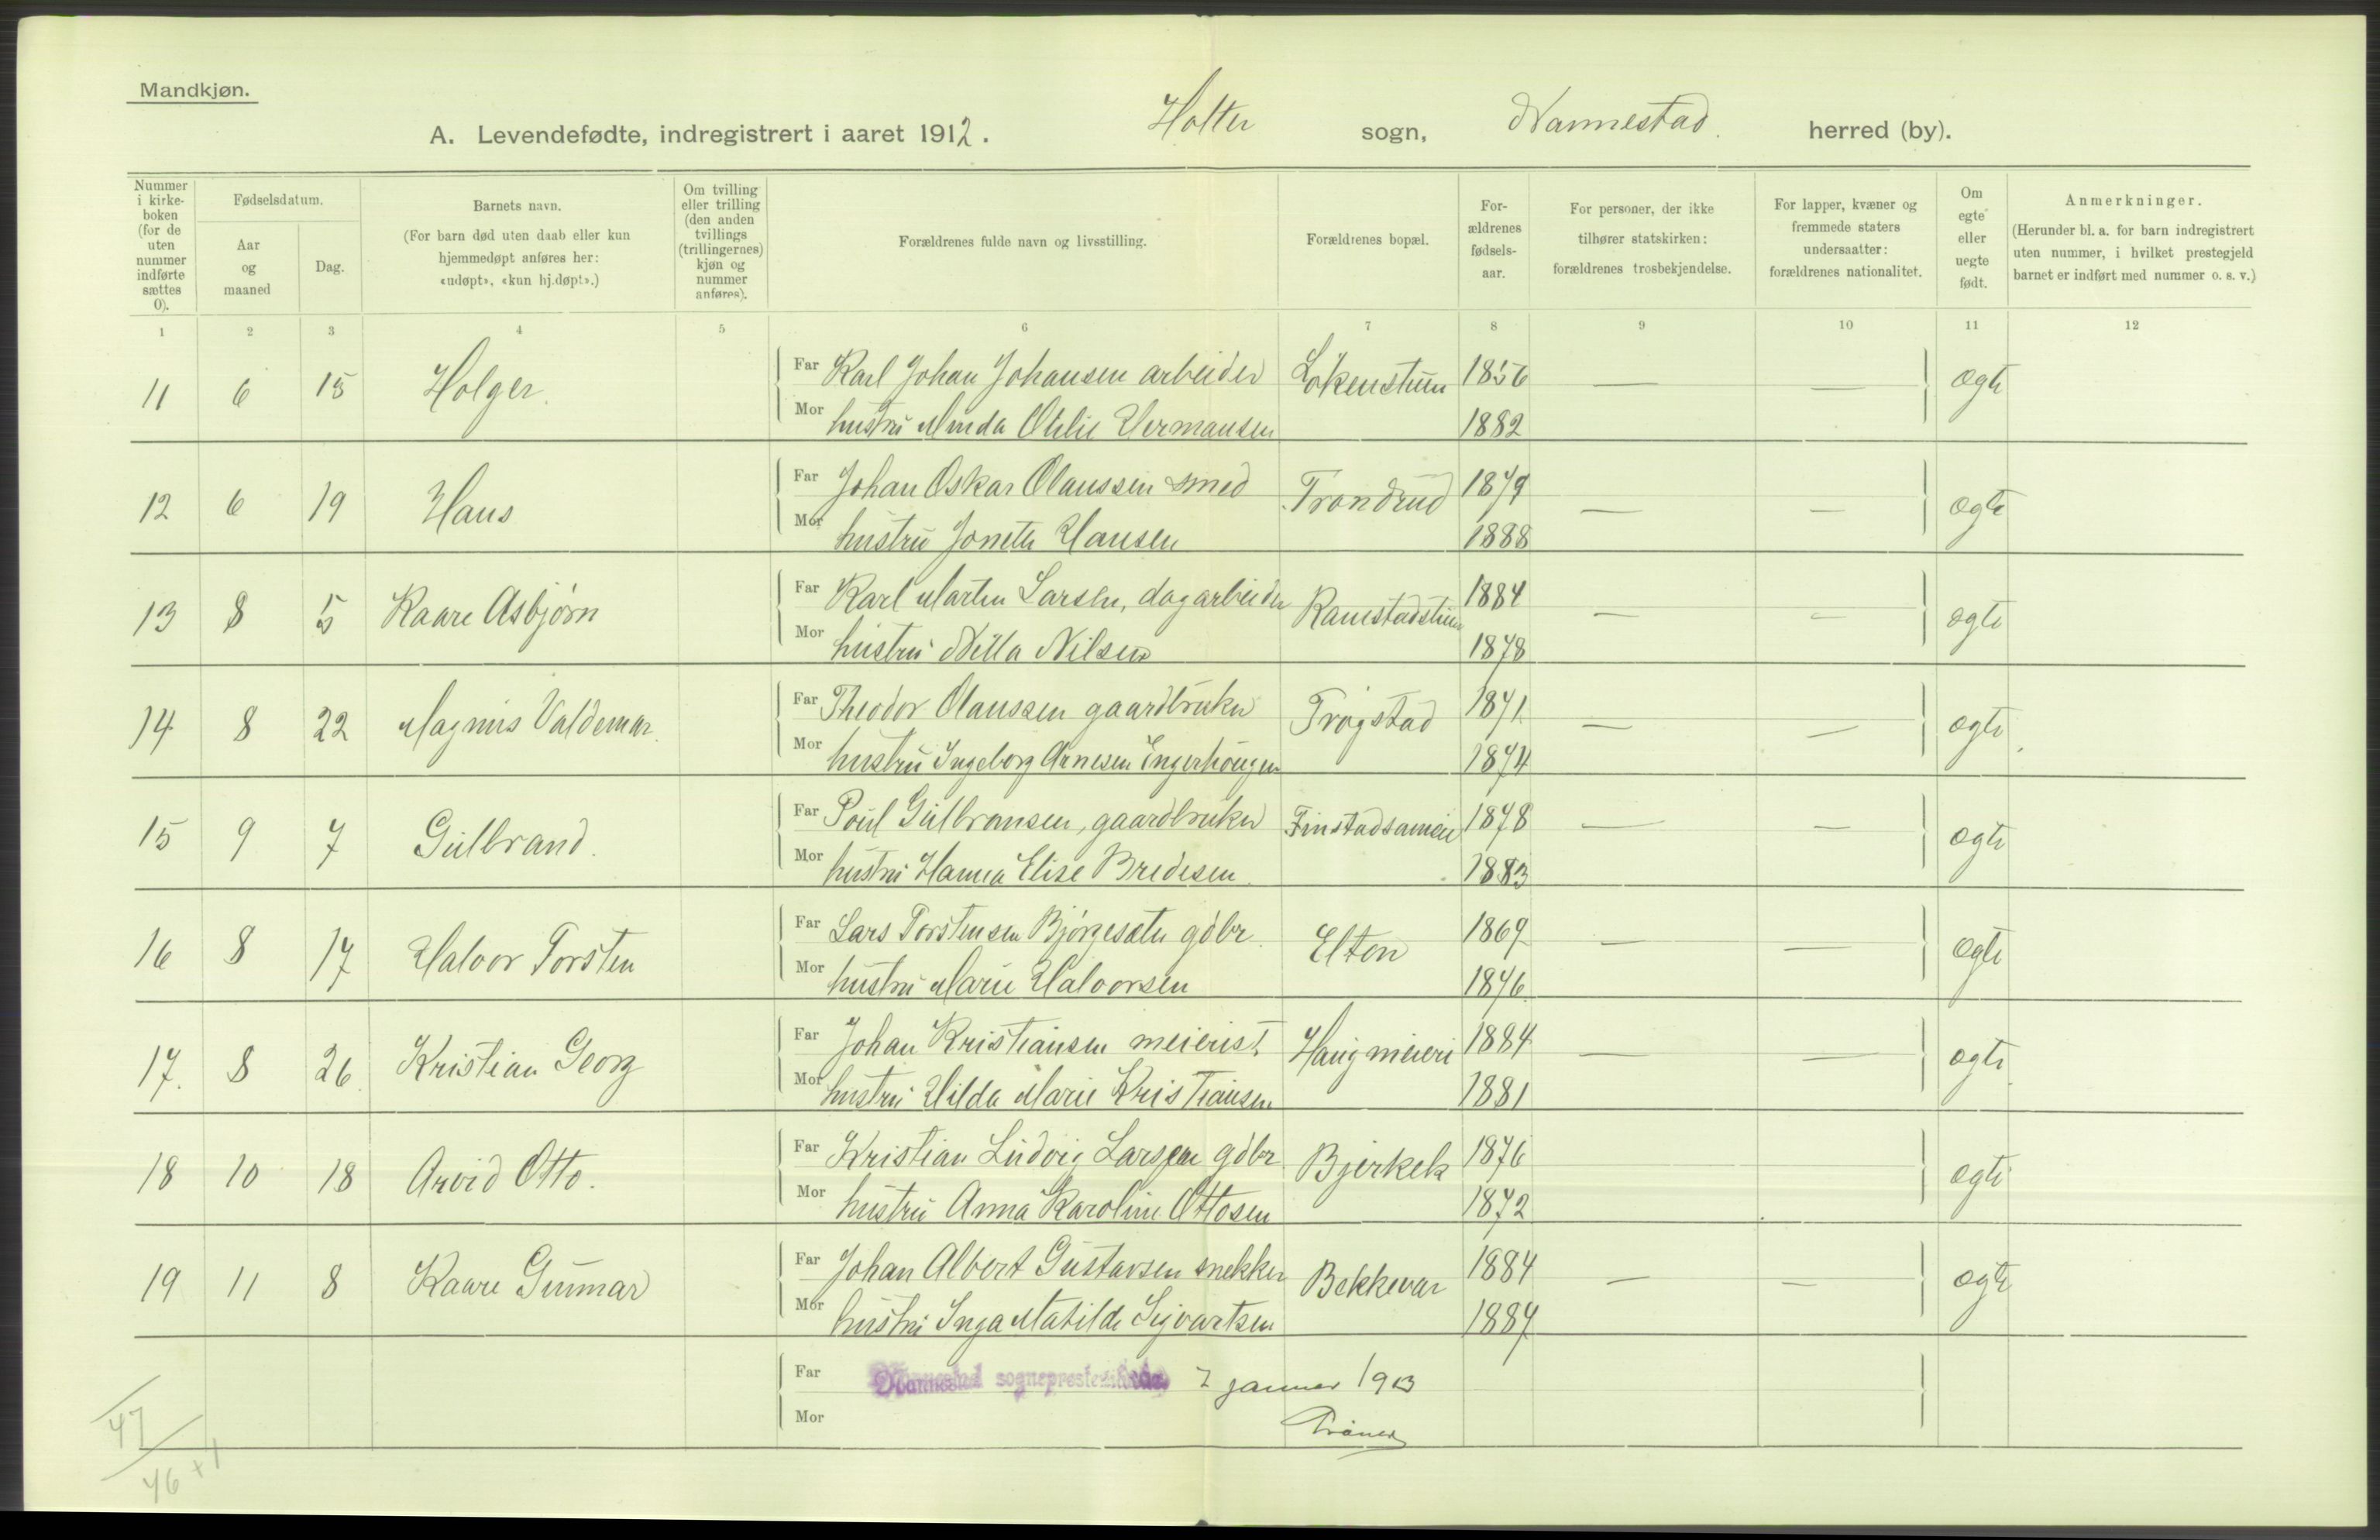 Mandkjøn.
A. Levendefødte, indregistrert i aaret 1912. Holter sogn, Nannestad. herred (by).
Nummer i kirke-boken (for de uten nummer indførte sættes 0).
Fødselsdatum.
Aar og maaned
Dag.
Barnets navn.
(For barn død uten daab eller kun hjemmedøpt anføres her: «udøpt», «kun hj.døpt».)
Om tvilling eller trilling (den anden tvillings (trillingernes) kjøn og nummer anføres).
Forældrenes fulde navn og livsstilling.
Forældrenes bopæl.
For-ældrenes fødsels-aar.
For personer, der ikke tilhører statskirken: forældrenes trosbekjendelse.
For lapper, kvæner og fremmede staters undersaatter: forældrenes nationalitet.
Om egte eller uegte født.
Anmerkninger.
(Herunder bl. a. for barn indregistrert uten nummer, i hvilket prestegjeld barnet er indført med nummer o. s. v.)
1 2 3 4 5 6 7 8 9 10 11 12
11 6 15 Holger. Far Karl Johan Johansen arbeider Løkenstuen 1856 — — ægte
Mor hustru Minda Otilie Hermansen 1882
12 6 19 Hans Far Johan Oskar Olaussen smed Trondrud 1879 — — ægte
Mor hustru Jonette Hansen 1888
13 8 5 Kaare Asbjørn Far Karl Martin Larsen, dagarbeider Ramstadstuen 1884 — — ægte
Mor hustru Nilla Nilsen 1878
14 8 22 Magnus Valdemar. Far Theodor Olaussen gaardbruker Trøgstad 1871 — — ægte
Mor hustru Ingeborg Arnesen Engerhougen 1874
15 9 7 Gulbrand. Far Poul Gulbransen, gaardbruker Finstadsameie 1878 — — ægte
Mor hustru Hanna Elise Bredesen. 1883
16 8 17 Halvor Torsten Far Lars Torstensen Bjørgesæter gdbr. Elton 1869 — — ægte
Mor hustru Marie Halvorsen 1876
17. 8 26 Kristian Georg Far Johan Kristiansen meierist Haug meieri 1884 — — ægte
Mor hustru Hilda Marie Kristiansen 1881
18 10 18 Arvid Otto. Far Kristian Ludvig Larsen gdbr. Bjerkek 1876 ægte
Mor hustru Anna Karoline Ottosen 1872
19 11 8 Kaare Gunnar Far Johan Albert Gustavsen snekker Bekkevar 1884 — — ægte
Mor hustru Inga Matilde Sigvartsen 1887
Far Nannestad sogneprestembede 7 januar 1913
Mor
47
46 + 1